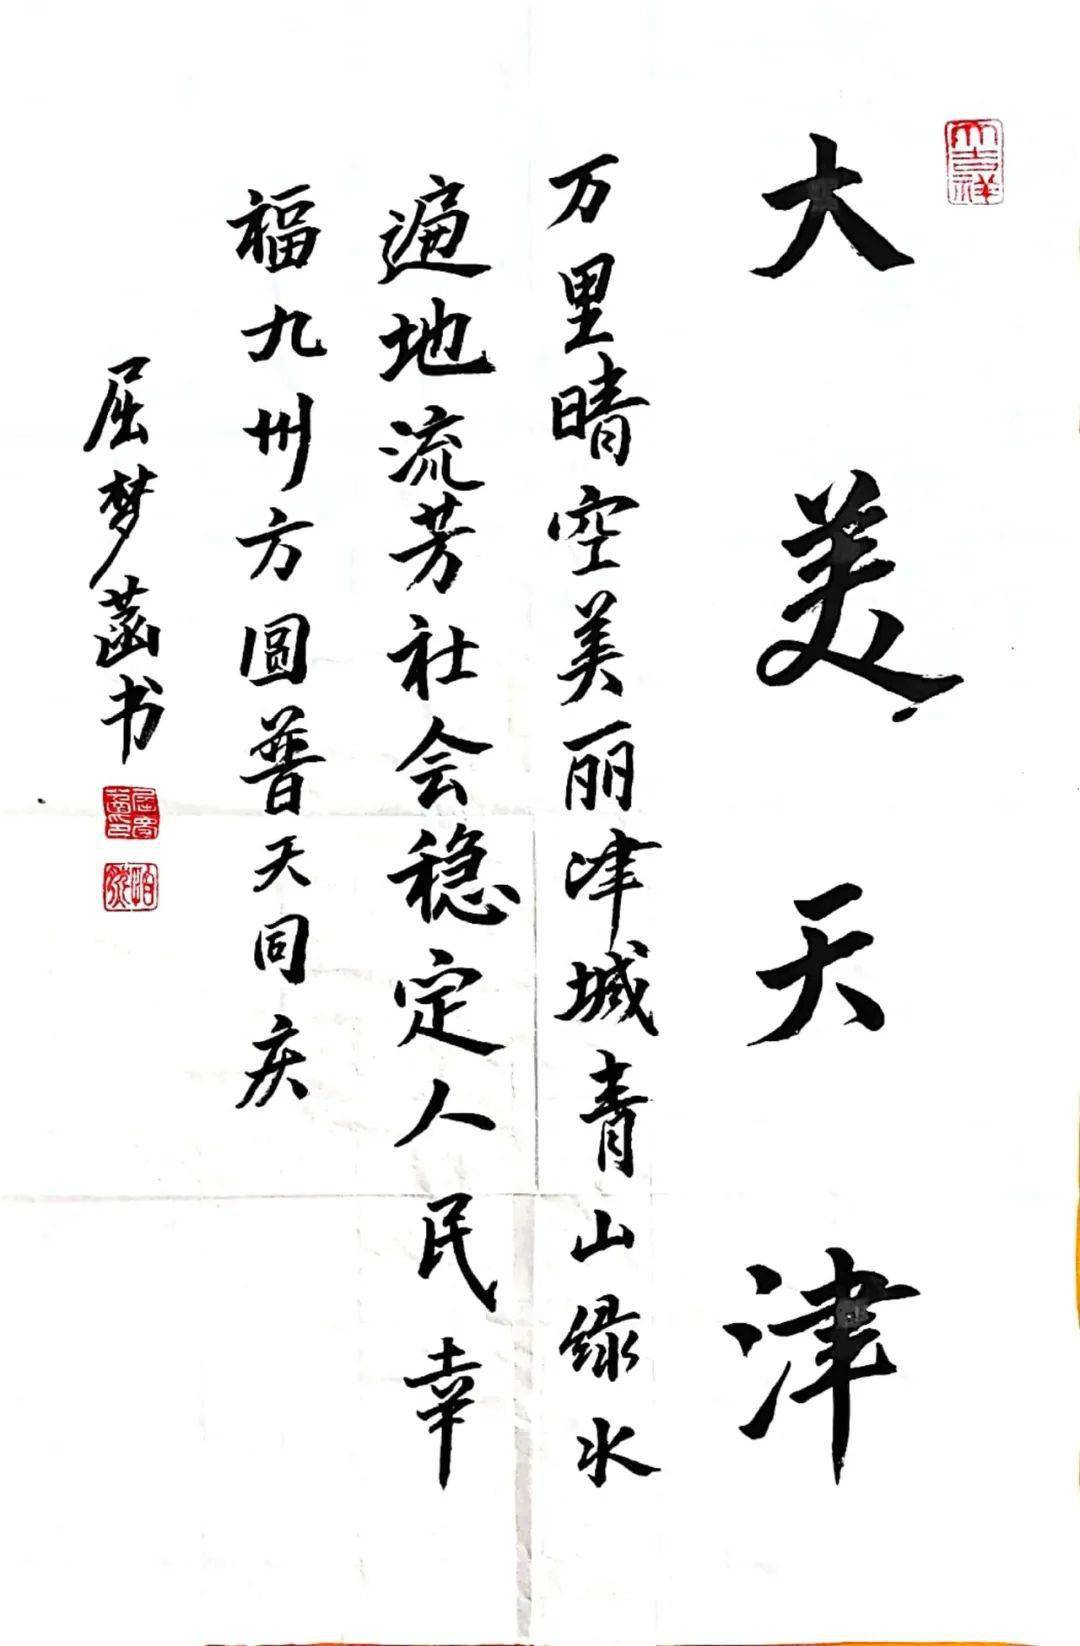 大美天津
万里晴空美丽津城青山绿水
遍地流芳社会稳定人民幸
福九州方圆普天同庆
屈梦菡书
大吉祥